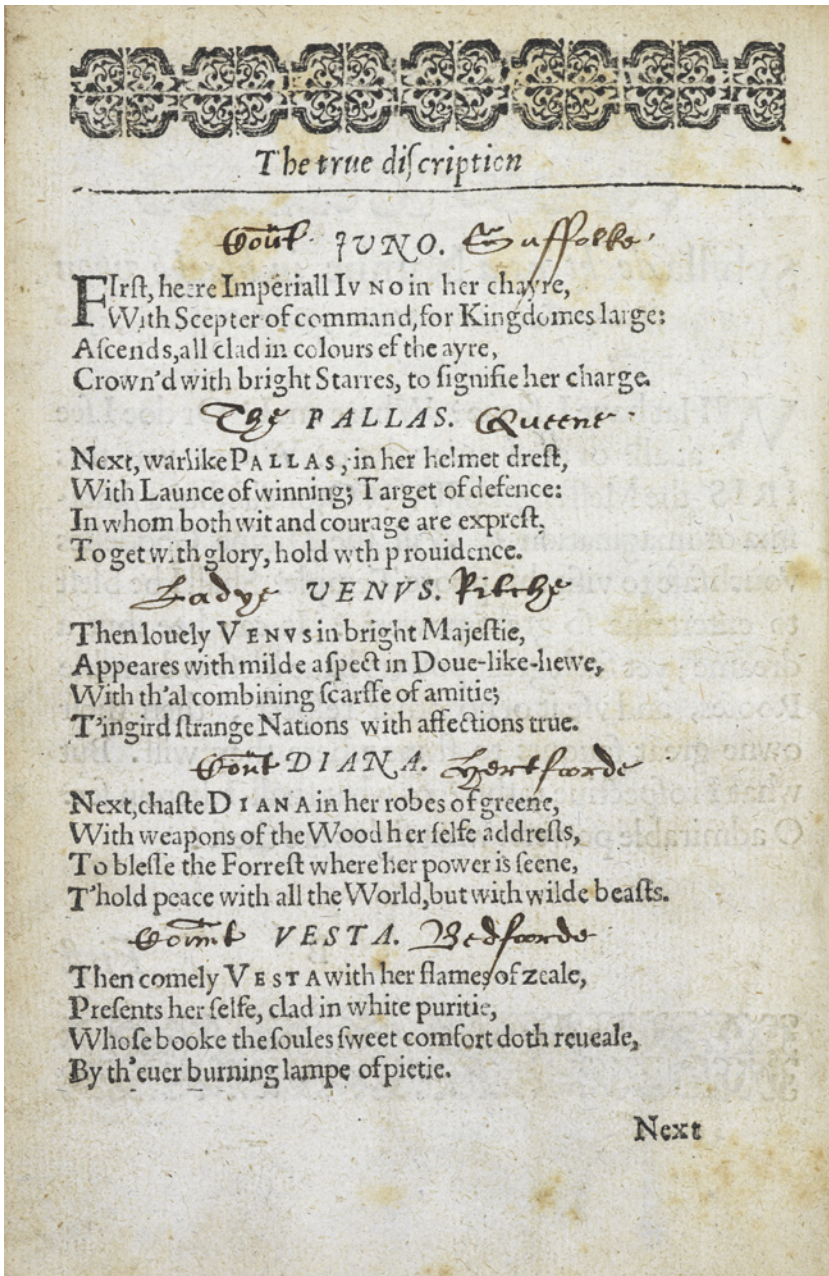 The true diſcription
Coũt JUNO. Suffolke
FIrſt, heere Imperiall IVNO in her chayre,
With Scepter of command, for Kingdomes large:
Aſcends, all clad in colours ef the ayre,
Crown'd with bright Starres, to ſignifie her charge.
The PALLAS. Queene
Next, warlike PALLAS, in her helmet dreſt,
With Launce of winning; Target of defence:
In whom both wit and courage are expreſt,
To get with glory, hold wth prouidence.
Ladye VENVS. Ritche
Then louely VENVS in bright Majeſtie,
Appeares with milde aſpect in Doue-like-hewe,
With th'al combining ſcarffe of amitie;
T'ingird ſtrange Nations with affections true.
Coũt DIANA. Hertforde
Next, chaſte DIANA in her robes of greene,
With weapons of the Wood her ſelfe addreſts,
To bleſſe the Forreſt where her power is ſeene,
T'hold peace with all the World, but with wilde beaſts.
Coũnt VESTA. Bedforde
Then comely VESTA with her flames of zeale,
Preſents her ſelfe, clad in white puritie,
Whoſe booke the ſoules ſweet comfort doth reueale,
By th'euer burning lampe of pietie.
Next